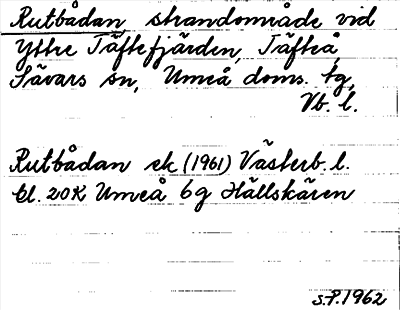 Rutbådan, strandområde vid
Yttre Täftefjärden, Täfteå,
Sävars sn, Umeå doms. tg,
Vb. l.
Rutbådan ek (1961) Västerb. l.
bl. 20K Umeå 6g Hällskären
S.P. 1962